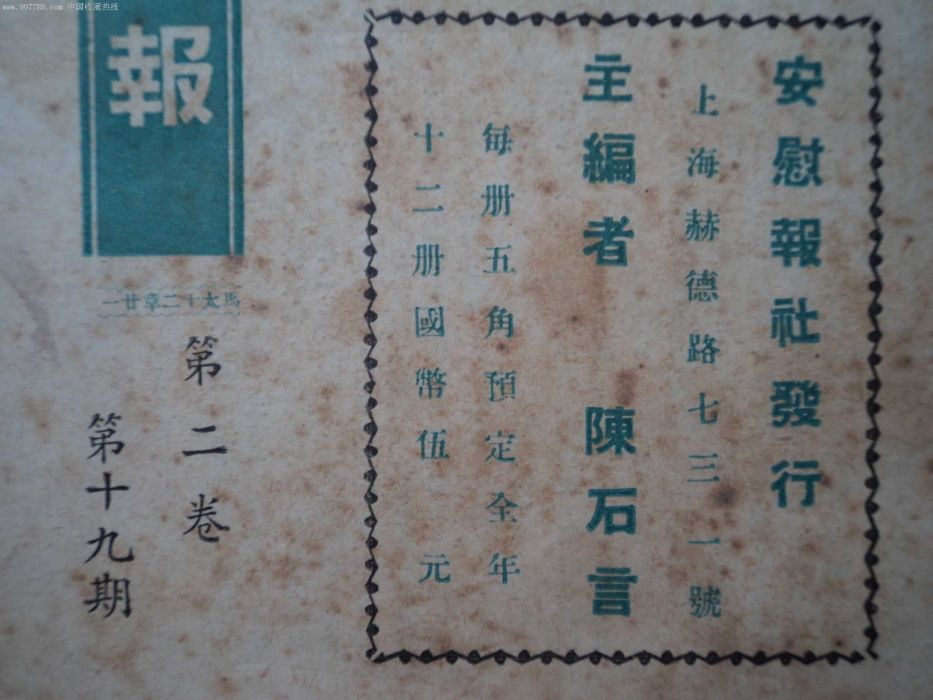 www.997788.com 中国收藏热线
安慰報社發行
上海赫德路七三一號
主編者 陳石言
每册五角預定全年
十二册國幣伍元
報
馬太十二章廿一
第二卷
第十九期